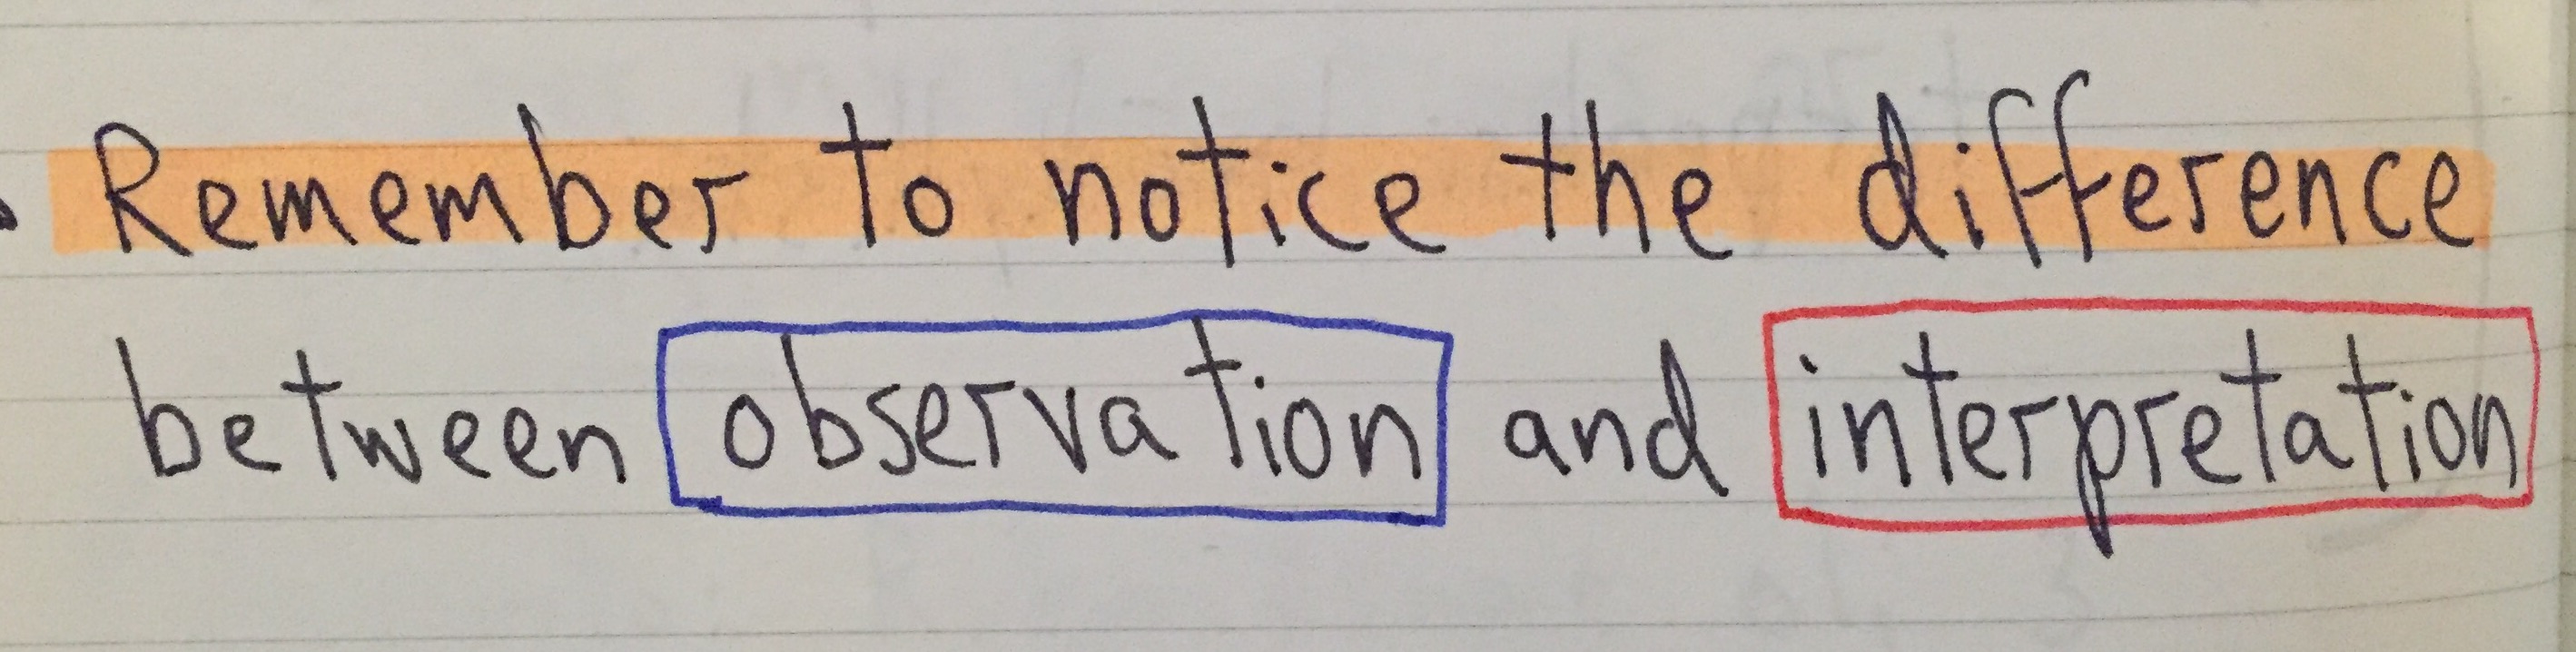 Remember to notice the difference
between observation and interpretation